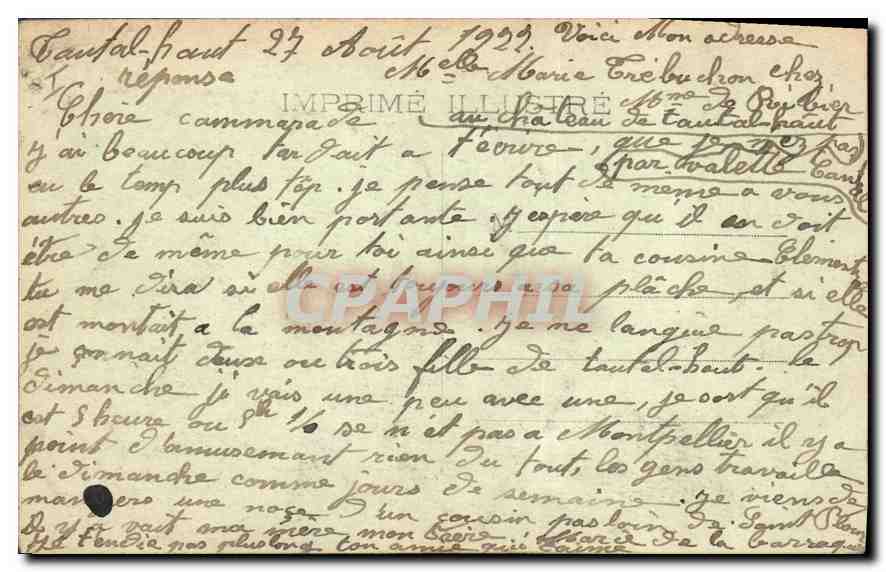 Tautal-haut 27 Août 1922. Voici Mon adresse
réponse Melle Marie Trébuchon chez
IMPRIMÉ ILLUSTRÉ Mme de
Chère cammarade au château de tautal-haut
j'ai beaucoup tardait a t'écrire, que je nez pas
par valette Cantal
eu le temp plus top. je pense tout de meme a vous
autres. je suis bien portante. j'espère qu'il en doit
être de même pour toi ainsi que ta cousine
tu me dira si elle est toujours a sa plâche, et si elle
CPAPHIL
est montait a la montagne. Je ne langüe pas trop
je connait deux ou trois fille de tautal-haut. le
dimanche je vais une peu avec une, je sort qu'il
est 5 heure ou 5h 1/2 se n'ét pas a Montpellier il y a
point d'amusemant rien du tout, les gens travaille
le dimanche comme jours de semaine. Je viens de
une noçe d'un cousin pas loin de Saint
il y a vait ma mère mon frère Marie de la barraque
Je t'en die pas plus long ton amie qui t'aime